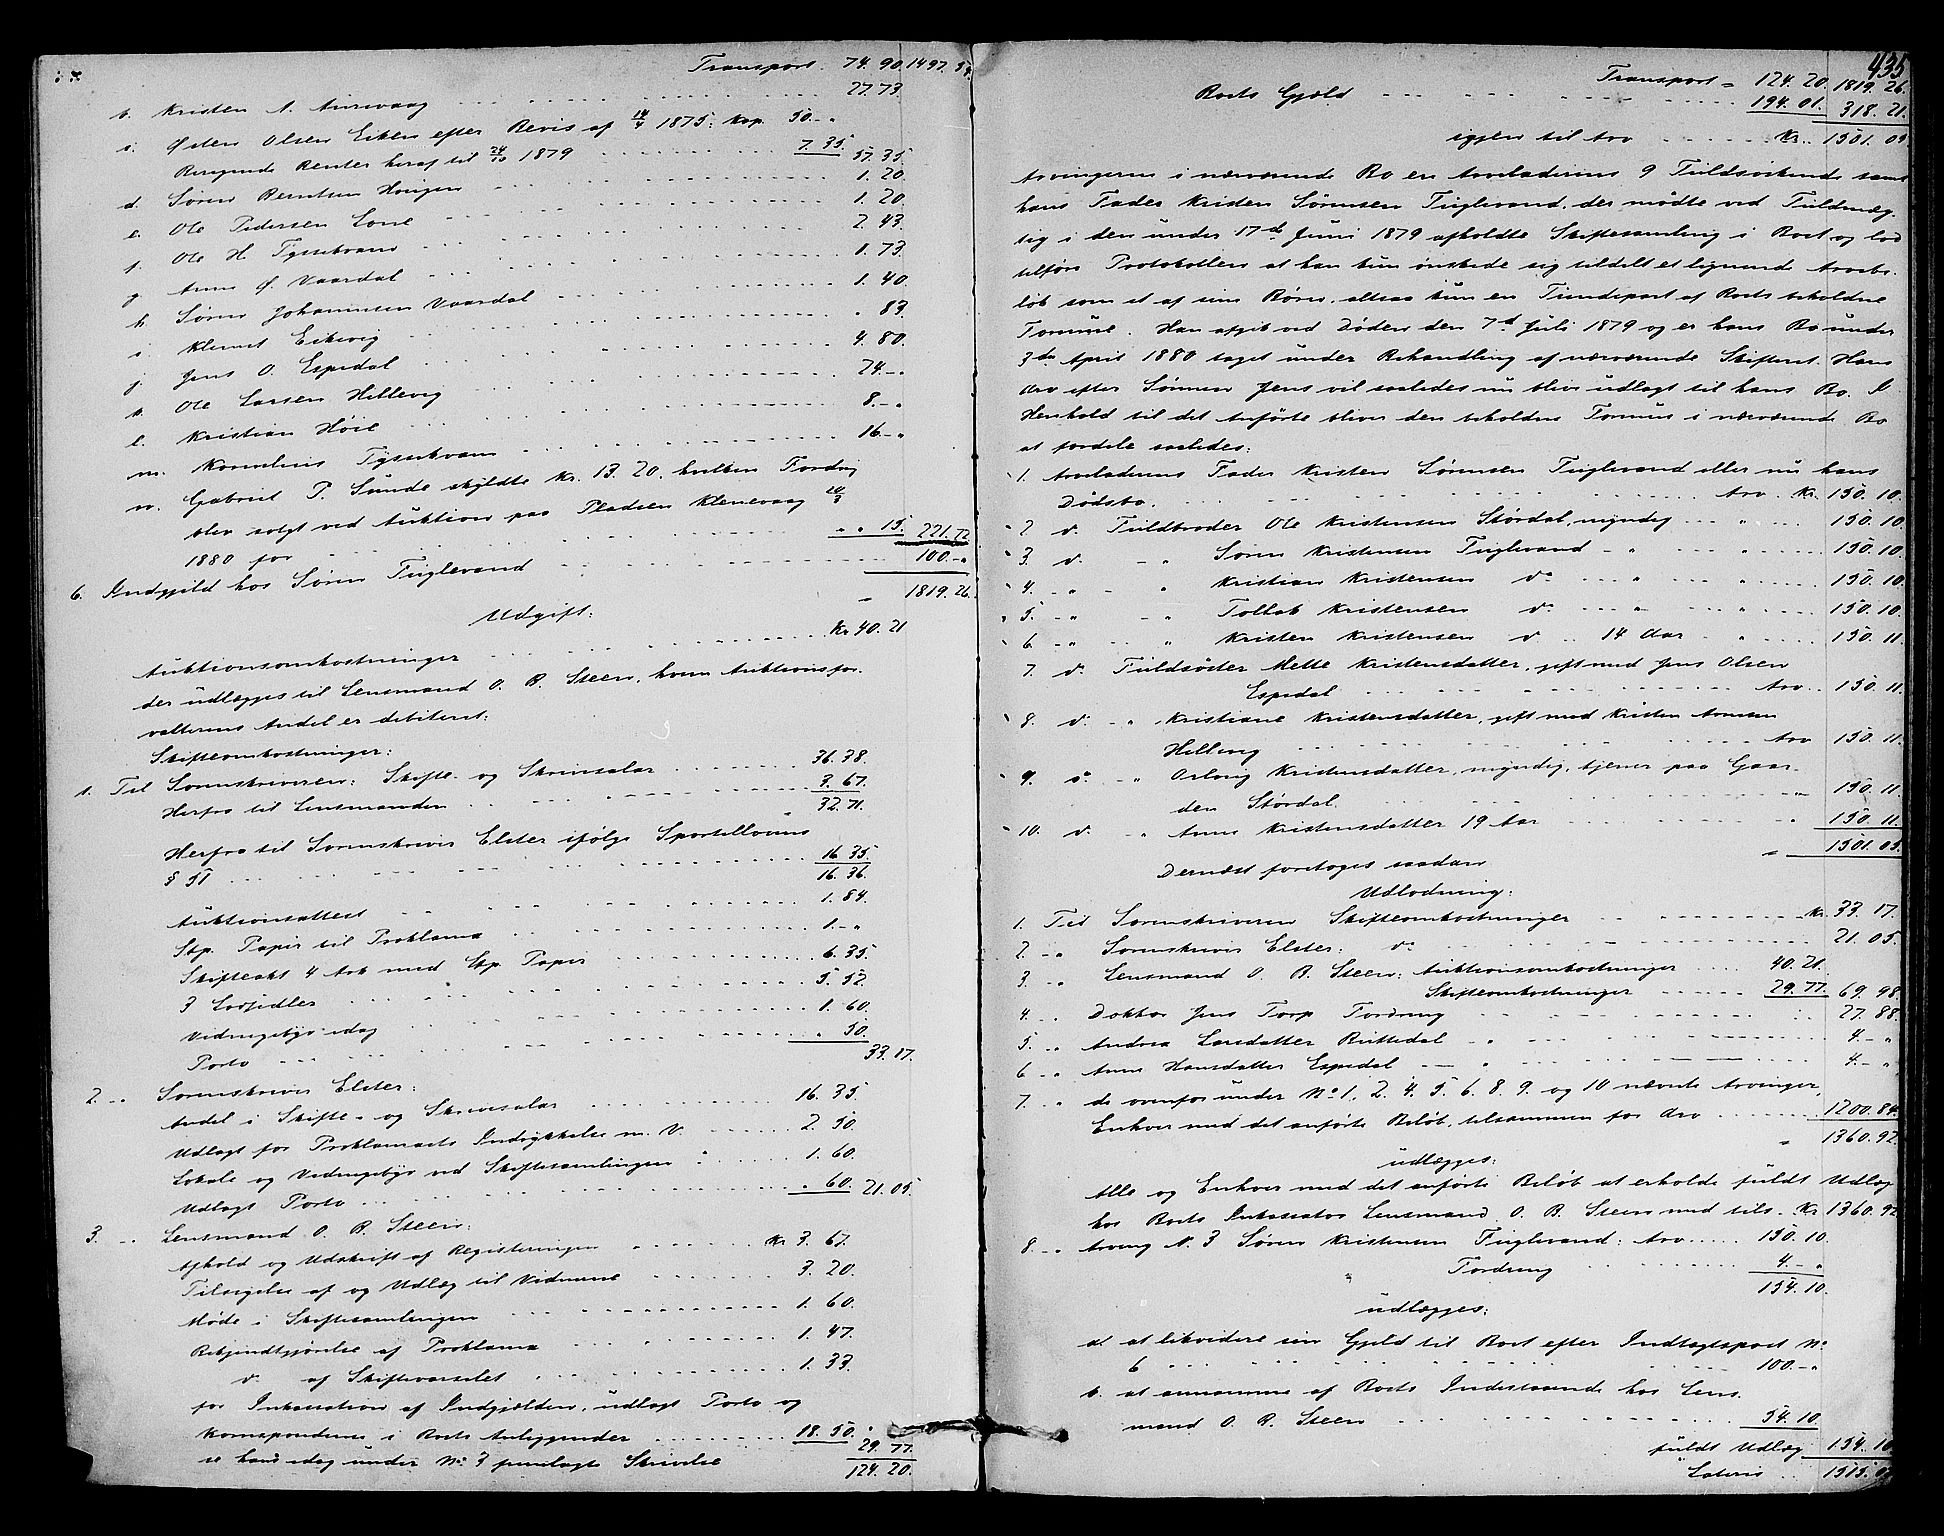 Transport. 74. 90. 1497. 54.
b. Kristen A. Aursvaag 27. 73.
c. Østen Olsen Eiken efter Bevis af 14/4 1875: Kap. 50. - "
Beregnede Renter heraf til 24/10 1879 7. 35. 57. 35
d. Sören Berntsen Hovigen 1. 20.
e. Ole Pedersen Lone 1. 20.
f. Ole H. Tyssekvam 2. 43.
g. Anne G. Vaardal 1. 73.
h. Sören Johannesen Vaardal 1. 40.
i. Klemet Eikevig " 83.
j. Jens O. Espedal 4. 80.
k. Ole Larsen Hellevig 24. - "
l. Kristian Höie 8. - "
m. Kornelius Tyssekvam 16. - "
n. Gabriel P. Sunde skyldte Kr. 13. 20. hvilken Fordring
blev solgt ved Auktion paa Pladsen Klenevaag
1880 for " " 15. 221. 72
6. Indgjeld hos Sören Fuglevand 100. - "
" 1819. 26.
Udgift:
Auktionsomkostninger Kr 40. 21
der udlægges til Lensmand O. B. Steen, hvem Auktionsfor-
valterens Andel er debiteret:
Skifteomkostninger:
1. Til Sorenskriveren: Skifte- og Skriversalar 36. 38.
Herfra til Lensmanden 3. 67.
32. 71.
Herfra til Sorenskriver Elster ifølge Sportellovens
§ 51 16. 35.
16. 36.
Auktionsattest 1. 84.
Stp. Papir til Proklama 1. - "
Skifteakt 4 Ark med Stp. Papir 6. 35.
3 Lodsedler 5. 52.
Vidnegebyr idag 1. 60.
Porto " 50.
33. 17.
2. - " Sorenskriver Elster:
Andel i Skifte- og Skriversalar 16. 35.
Udlagt for Proklamaets Indrykkelse m. V. 2. 50.
Lokale og Vidnegebyr ved Skiftesamlingen 1. 60.
Udlagt Porto " 60. 21. 05.
3. - " Lensmand O. B. Steen:
Afhold og Udskrift af Registreringen Kr 3. 67.
Tilsigelse af og Udlæg til Vidnerne 3. 20.
Møde i Skiftesamlingen 1. 60.
Bekjendtgjörelse af Proklama 1. 47.
do af Skiftevarselet 1. 33.
for Inkassation af Indgjælden, udlagt Porto og
Korrespondence i Boets Anliggender 18. 50.
se hans idag under No 3 fremlagte Skrivelse 29. 77.
124. 20.
435
Transport " 124. 20. 1819. 26.
Boets Gjæld 194. 01. 318. 21.
igjen til Arv Kr. 1501. 05.
Arvingerne i nærværende Bo er Arveladerens 9 Fuldsöskende samt
hans Fader Kristen Sörensen Fuglevand, der mödte ved Fuldmæg-
tig i den under 17de Juni 1879 afholdte Skiftesamling i Boet og lod
tilföre Protokollen at han kun önskede sig tildelt et lignende Arvebe-
löb som et af sine Börn, altsaa kun en Tiendepart af Boets beholdne
Formue. Han afgik ved Döden den 7de Juli 1879 og er hans Bo under
3de April 1880 taget under Behandling af nærværende Skifteret. Hans
Arv efter Sönnen Jens vil saaledes nu blive udlagt til hans Bo. I
Henhold til det Anförte bliver den beholdne Formue i nærværende Bo
at fordele saaledes:
1. Arveladerens Fader Kristen Sörensen Fuglevand eller nu hans
Dödsbo. Arv Kr. 150. 10.
2. do Fuldbroder Ole Kristensen Stördal, myndig " 150. 10.
3. do - " Sören Kristensen Fuglevand - " " 150. 10.
4. - " - " Kristian Kristensen do " " 150. 10.
5. - " - " Tollak Kristensen do " " 150. 10.
6. - " " Kristen Kristensen do 14 Aar " 150. 11.
7. do Fuldsöster Mette Kristensdatter, gift med Jens Olsen
Espedal Arv 150. 11.
8. do - " Kristiane Kristensdatter, gift med Kristen Arnesen
Hellevig Arv 150. 11.
9. do - " Oslaug Kristensdatter, myndig, tjener paa Gaar-
den Stördal " 150. 11.
10. do - " Anne Kristensdatter 19 Aar " 150. 11.
" 1501. 05.
Dernæst foretoges saadan
Udlodning:
1. Til Sorenskriveren Skifteomkostninger Kr. 33. 17.
2. - " Sorenskriver Elster: do 21. 05.
3. - " Lensmand O. B. Steen: Auktionsomkostninger 40. 21.
Skifteomkostninger 29. 77. 69. 98.
4. - " Doktor Jens Torp Fordring 27. 88.
5. - " Andrea Larsdatter Bruttedal - " 4. - "
6. - " Anne Hansdatter Espedal - " 4. - "
7. - " de ovenfor under No 1, 2. 4. 5. 6. 8. 9. og 10 nævnte Arvinger,
Enhver med det anförte Belöb, tilsammen for Arv 1200. 84.
" 1360. 92.
udlægges:
Alle og Enhver med det anförte Belöb at erholde fuldt Udlæg
hos Boets Inkassator Lensmand O. B. Steen med tils. Kr 1360. 92
8. - " Arving N. 3 Sören Kristensen Fuglevand: Arv 150. 10.
" Fordring 4. - "
154. 10.
udlægges:
a. at likvidere sin Gjeld til Boet efter Indtægtspost No
6 100. - "
b. at annamme af Boets Indestaaende hos Lens-
mand O. B. Steen 54. 10.
fuldt Udlæg 154. 10
Lateris 1515. 02